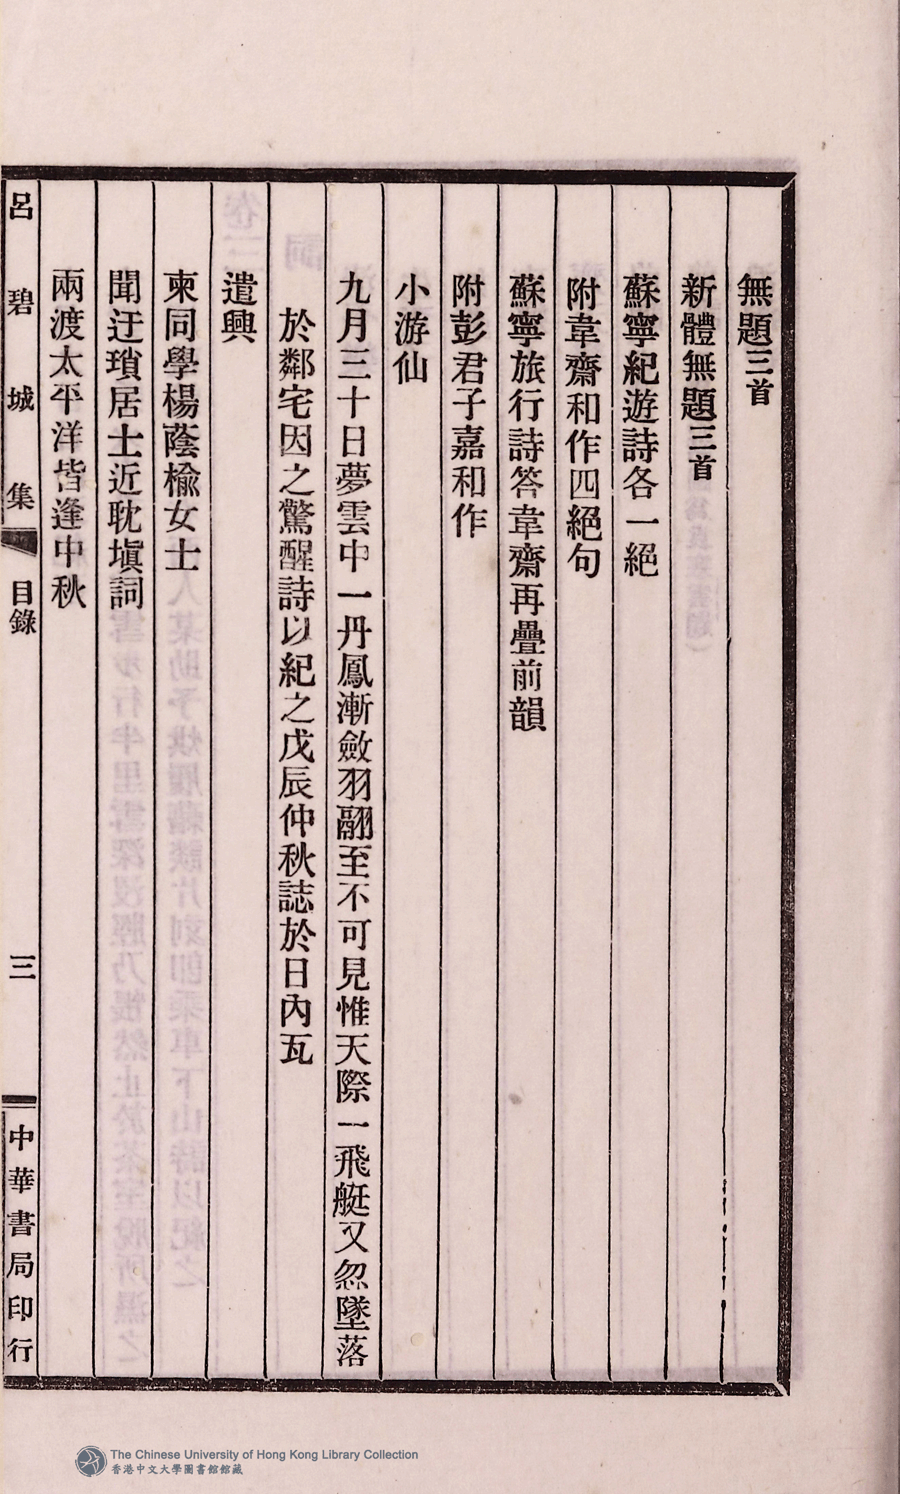 無題三首
新體無題三首
蘇寧紀遊詩各一絕
附韋齋和作四絕句
蘇寧旅行詩答韋齋再疊前韻
附彭君子嘉和作
小游仙
九月三十日夢雲中一丹鳳漸斂羽翮至不可見惟天際一飛艇又忽墜落
於鄰宅因之驚醒詩以紀之戊辰仲秋誌於日內瓦
遣興
柬同學楊蔭楡女士
聞迂瑣居士近耽塡詞
兩渡太平洋皆逢中秋
呂碧城集 目錄 三 中華書局印行
The Chinese University of Hong Kong Library Collection
香港中文大學圖書館館藏